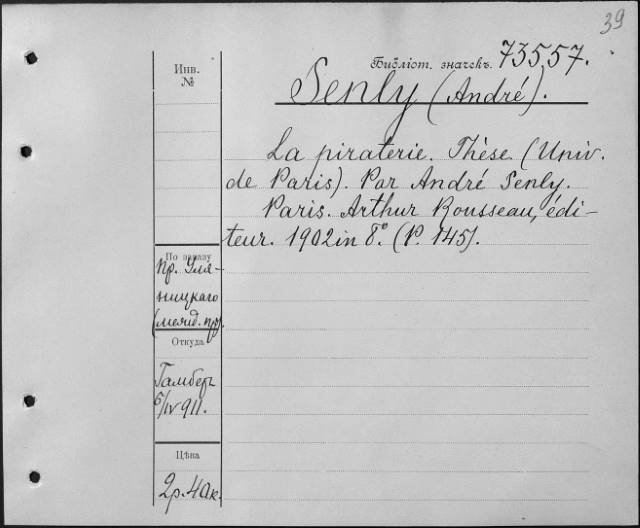 39
Библіот. значекъ. 73557.
Инв.
№
Senly (André).
La piraterie. Thèse (Univ.
de Paris). Par André Senly.
Paris. Arthur Rousseau, édi-
teur. 1902 in 8°. (P. 145).
По заказу
Пр. Уля-
ницкаго
(межд. пр.).
Откуда
Гамбер
6/IV 911.
Цѣна
2р. 40к.